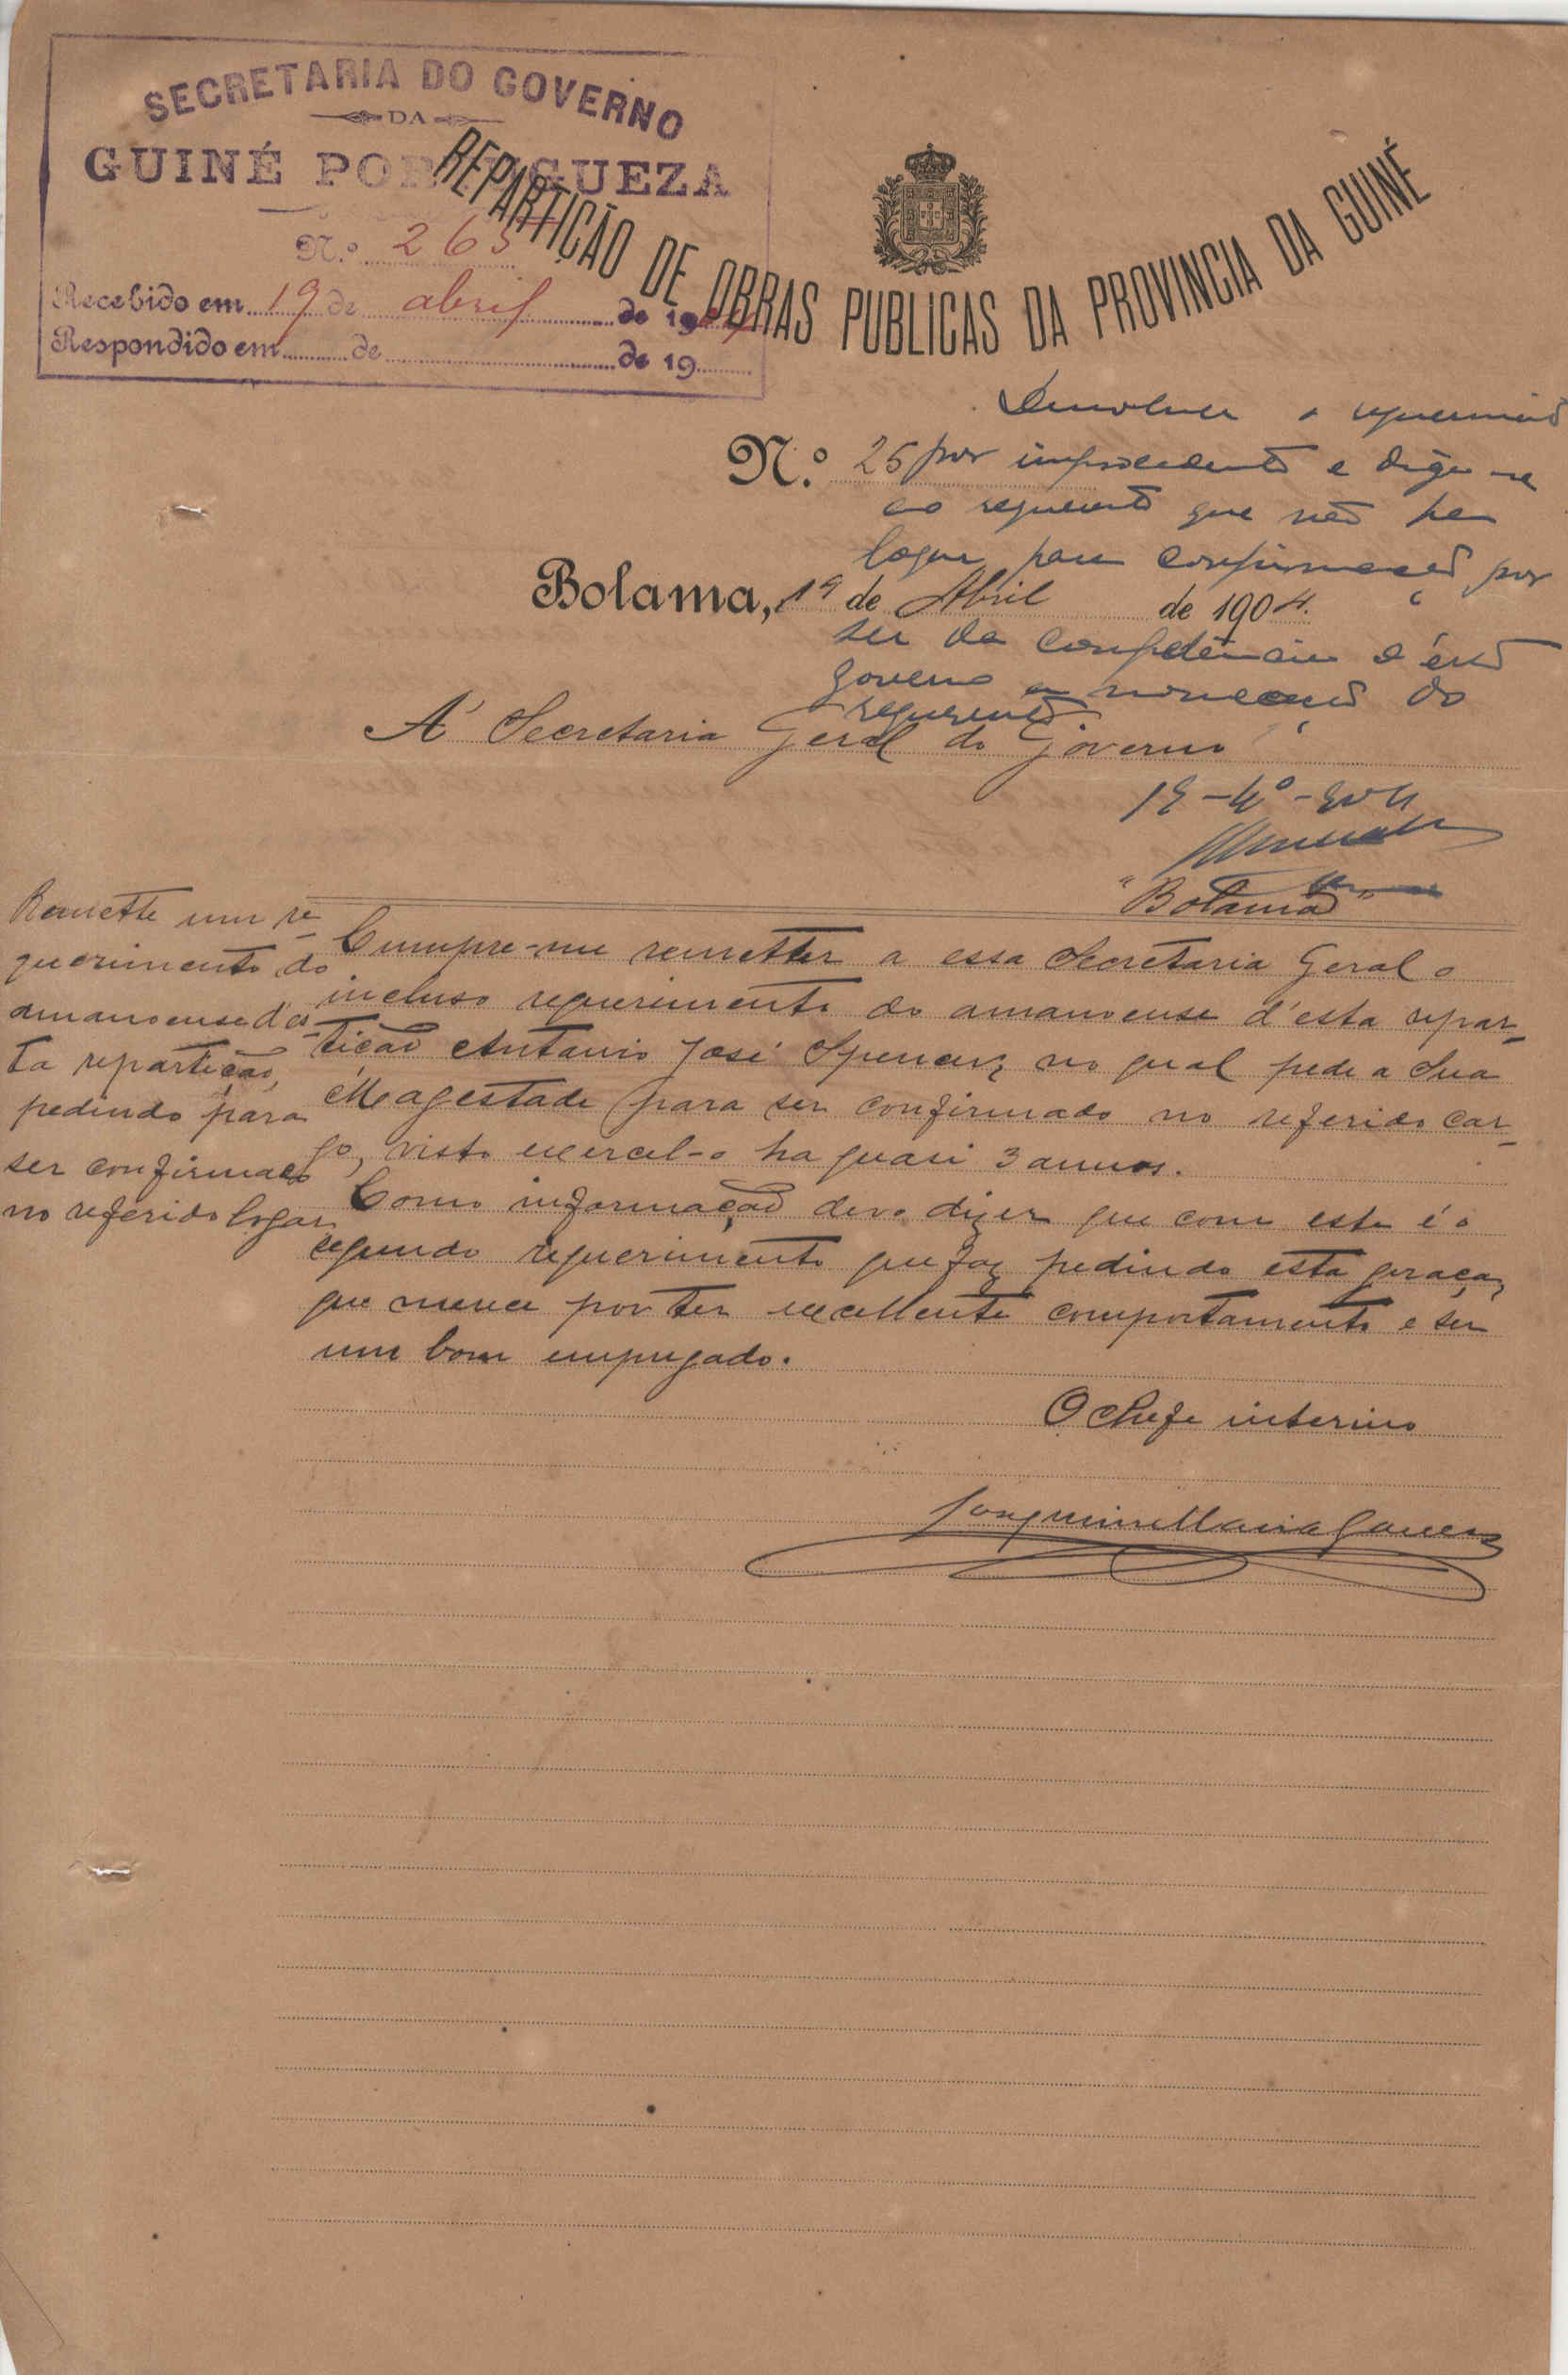 SECRETARIA DO GOVERNO
DA
GUINÉ PORTUGUEZA
N.º 263
Recebido em 19 de abril de 1904
Respondido em de de 19
REPARTIÇÃO DE OBRAS PUBLICAS DA PROVINCIA DA GUINÉ
Devolva o requerimento
N.º 26
por improcedente e diga-se
ao requerente que não ha
logar para confirmação, por
Bolama, 19 de Abril de 1904.
ser da competência d'este
governo a nomeação do
requerente.
A' Secretaria Geral do Governo
19-4º-904
"Bolama"
Remette um re-
querimento do
amanuense des-
ta repartição,
pedindo para
ser confirmado
no referido logar
Cumpre-me remetter a essa Secretaria Geral o
incluso requerimento do amanuense d'esta repar-
tição Antonio José Spencer, no qual pede a Sua
Magestade para ser confirmado no referido car-
go, visto exercel-o ha quasi 3 annos.
Como informação devo dizer que com este é o
segundo requerimento que faz pedindo esta graça,
que merece por ter excellente comportamento e ser
um bom empregado.
O Chefe interino
Joaquim Maria